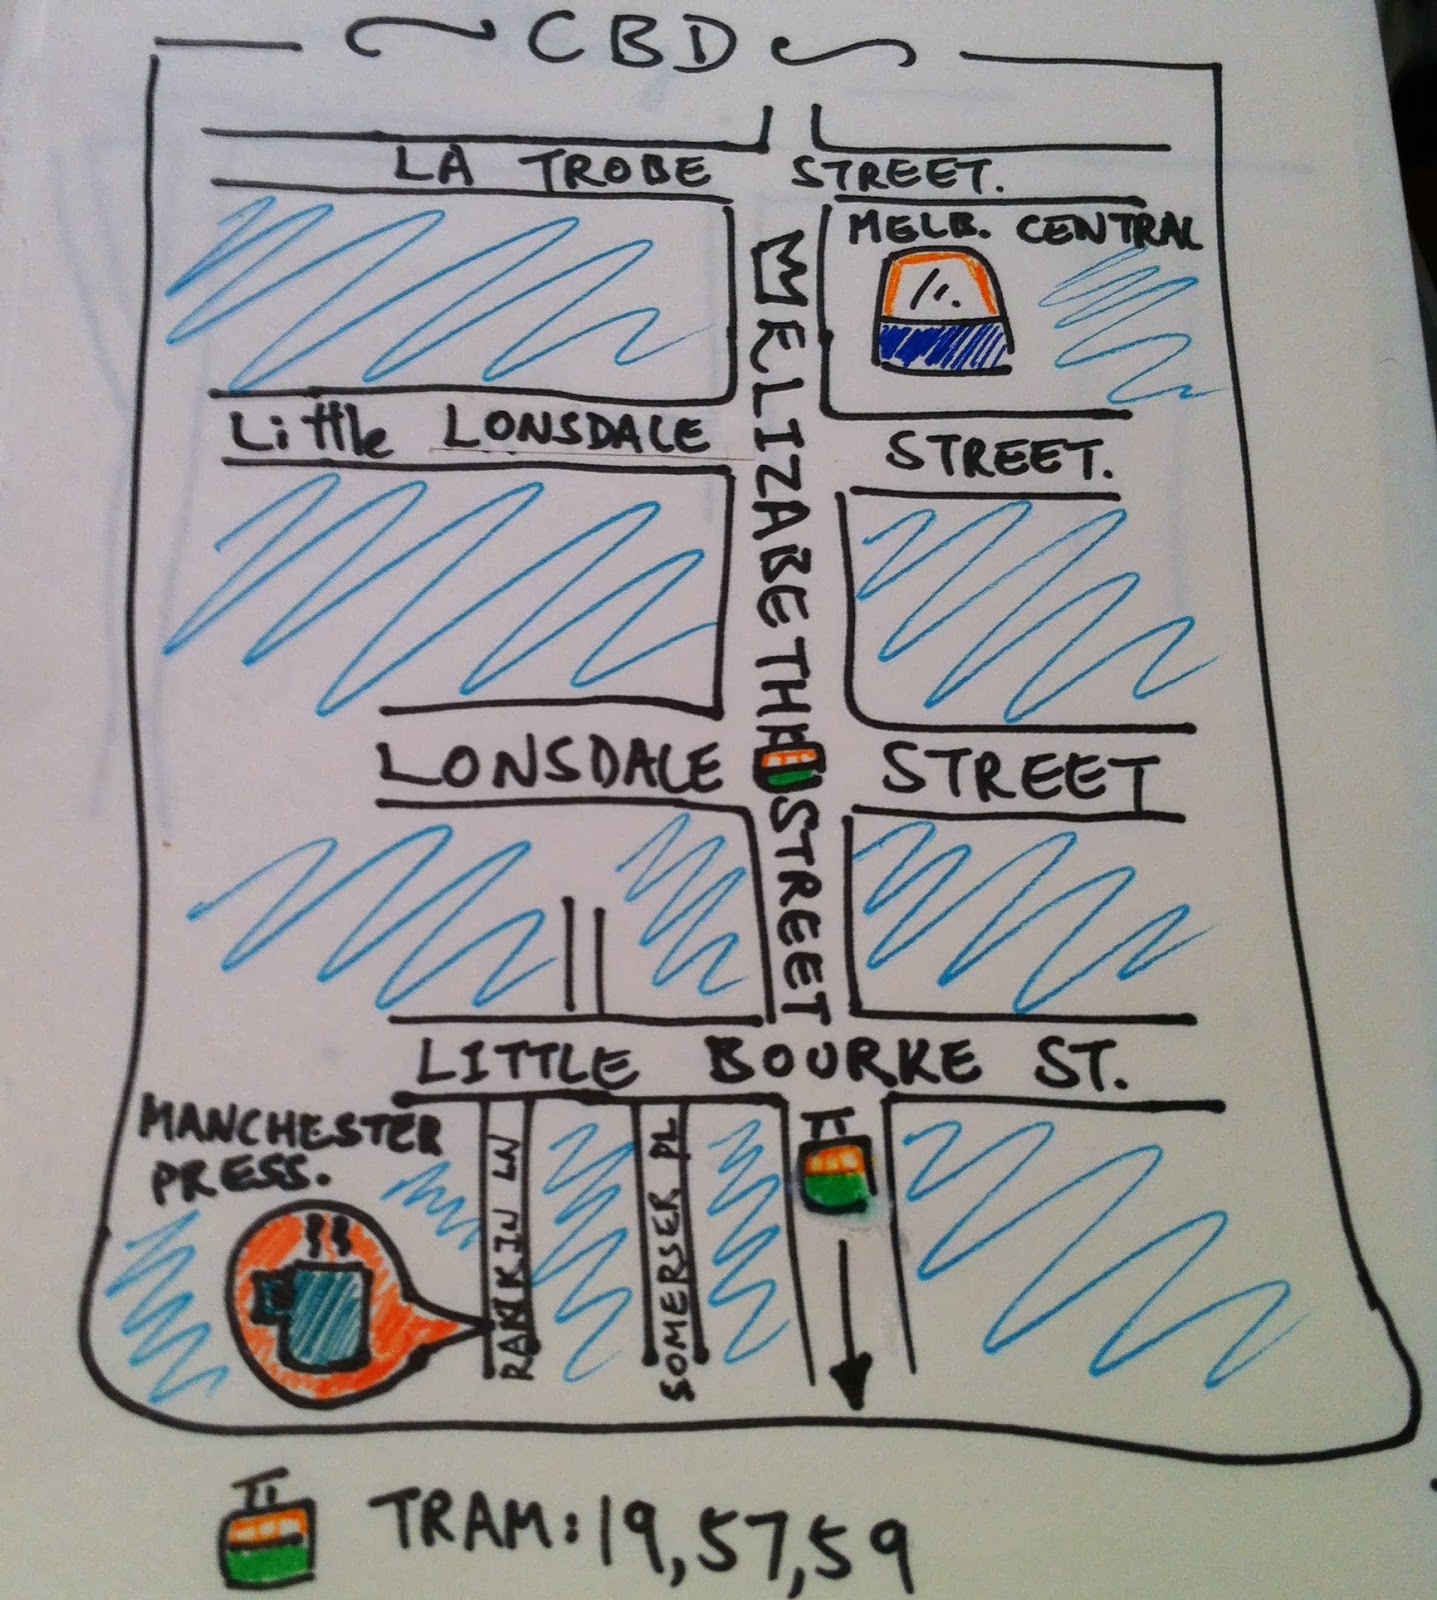 CBD
LA TROBE STREET.
MELB. CENTRAL
ELIZABETH STREET
Little LONSDALE STREET.
LONSDALE STREET
LITTLE BOURKE ST.
MANCHESTER
PRESS.
RANKIN LN
SOMERSER PL
TRAM: 19,57,59